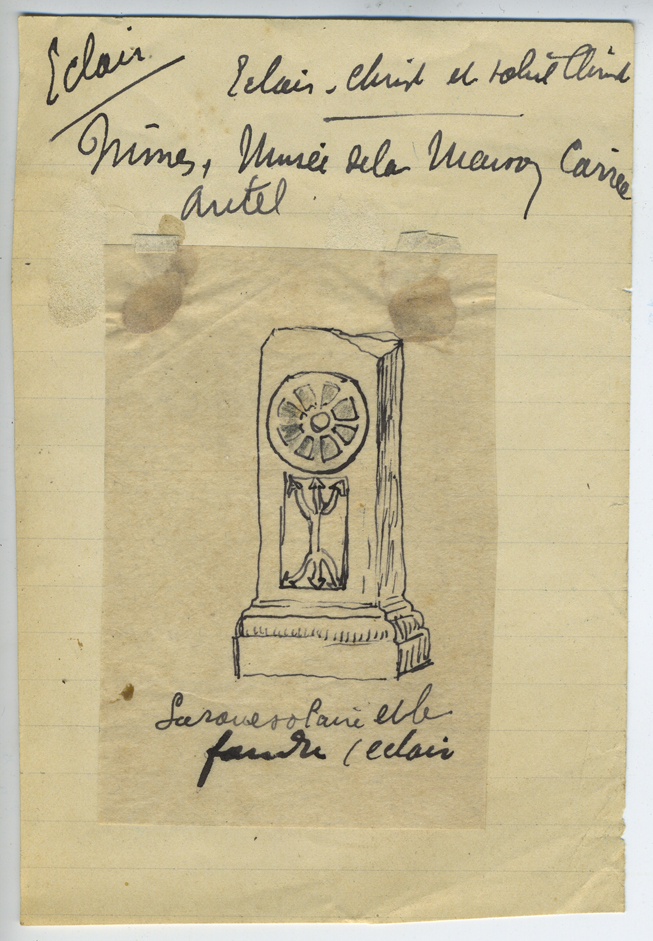 Eclair
Eclair, Christ et soleil Christ
Nîmes, Musée dela Maison Carrée
autel
La roue solaire et le
foudre (eclair